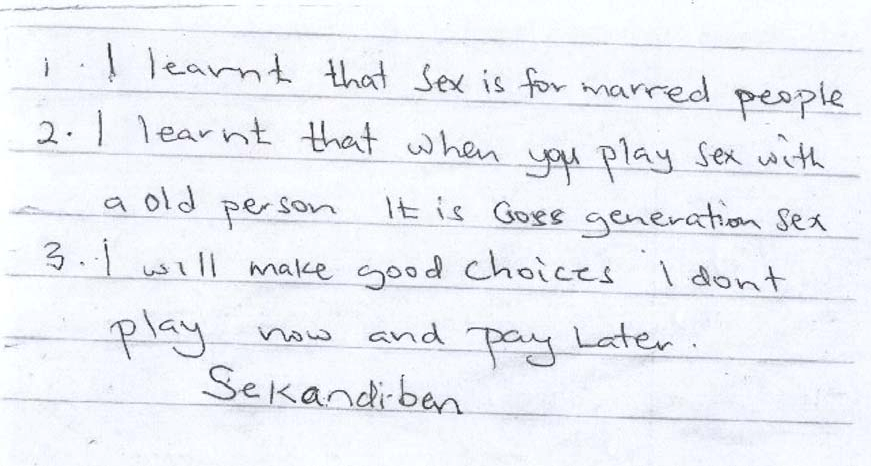 1. I learnt that sex is for marred people
2. I learnt that when you play sex with
a old person It is Goss generation sex
3. I will make good choices I dont
play now and pay Later.
Sekandi-ben